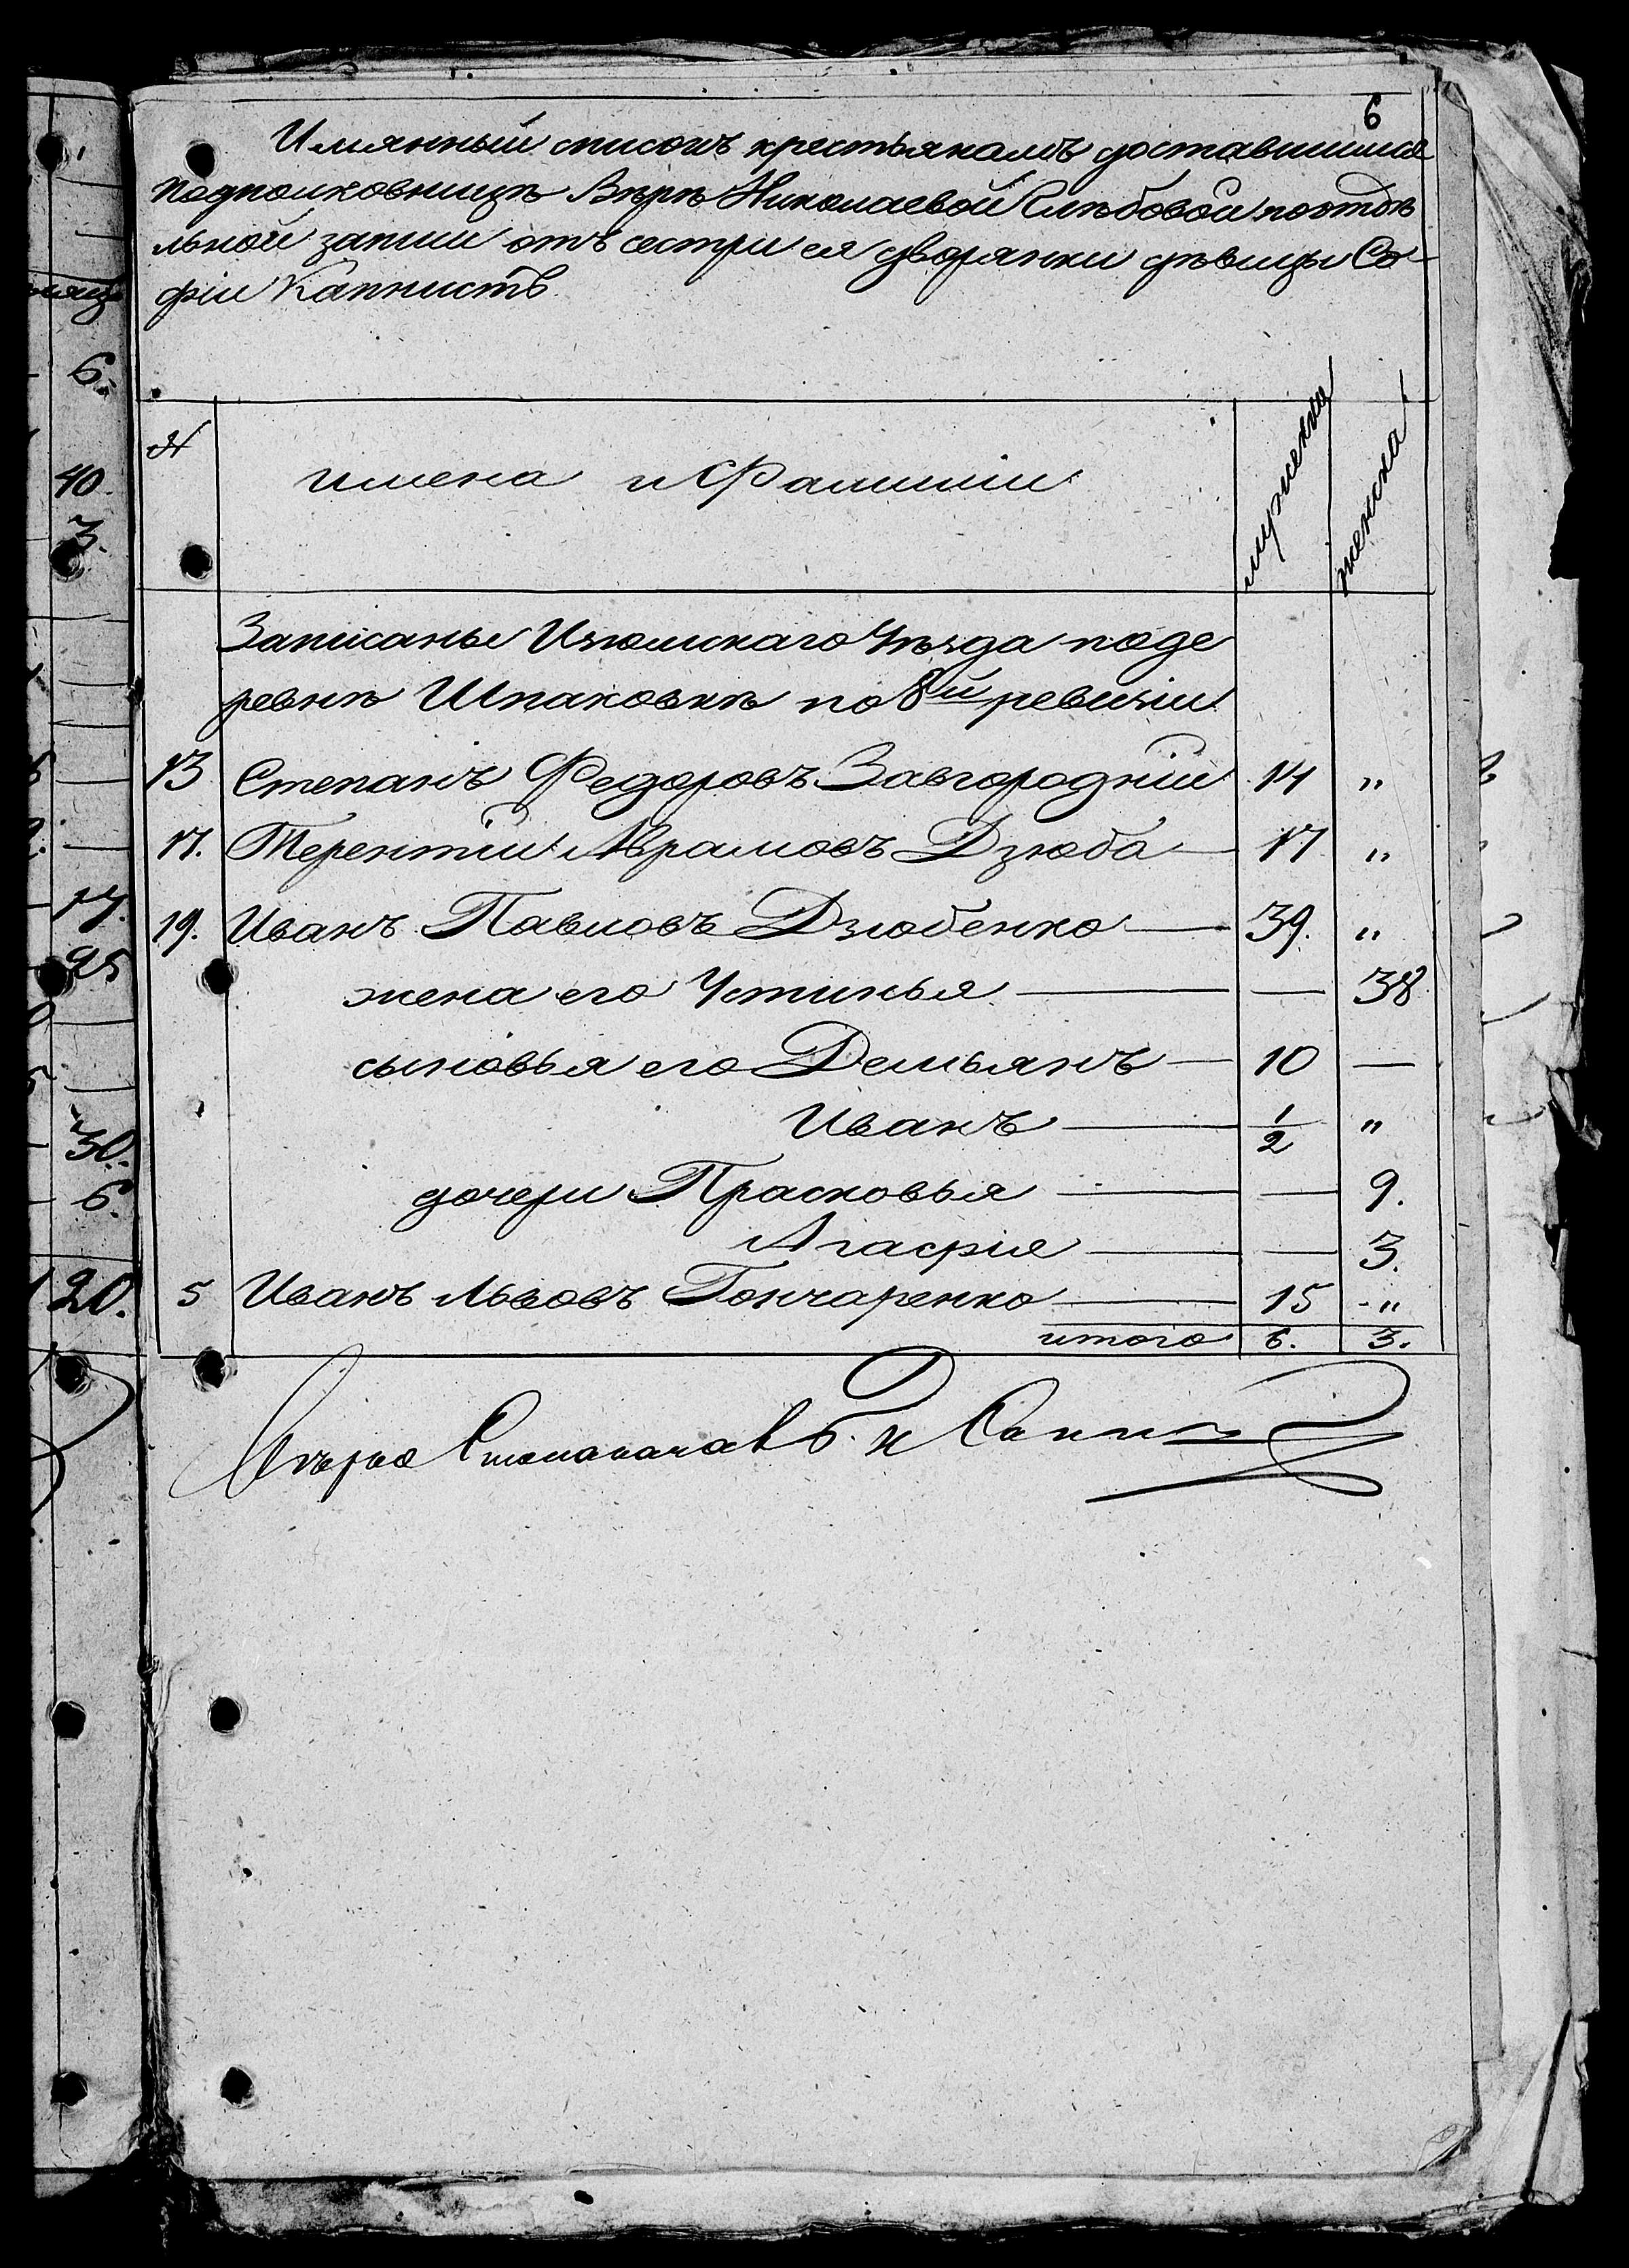 6
Имянный списокъ крестьянамъ доставшимся
Подполковницѣ Вѣрѣ Николаевой Слѣбовой по отдѣ
льной записи отъ сестри ея дворянки дѣвицы Со-
фіи Капнистъ.
№ имена и Фамиліи мужеска женска
Записаные Изюмскаго Уѣзда по де
ревнѣ Шпаковкѣ по 8й ревизіи
13 Степанъ Федоровъ Завгородній 14 "
17. Терентій Аврамовъ Дзюба — 17 "
19. Иванъ Павловъ Дзюбенко — 39. "
жена его Устинья — — 38
сыновья его Демьянъ — 10 —
Иванъ — 1/2 "
дочери Прасковья — — 9.
Агафія — — 3.
5 Иванъ Львовъ Гончаренко — 15 - "
итого 6. 3.
6.
40.
3.
17.
25
30.
6.
120.